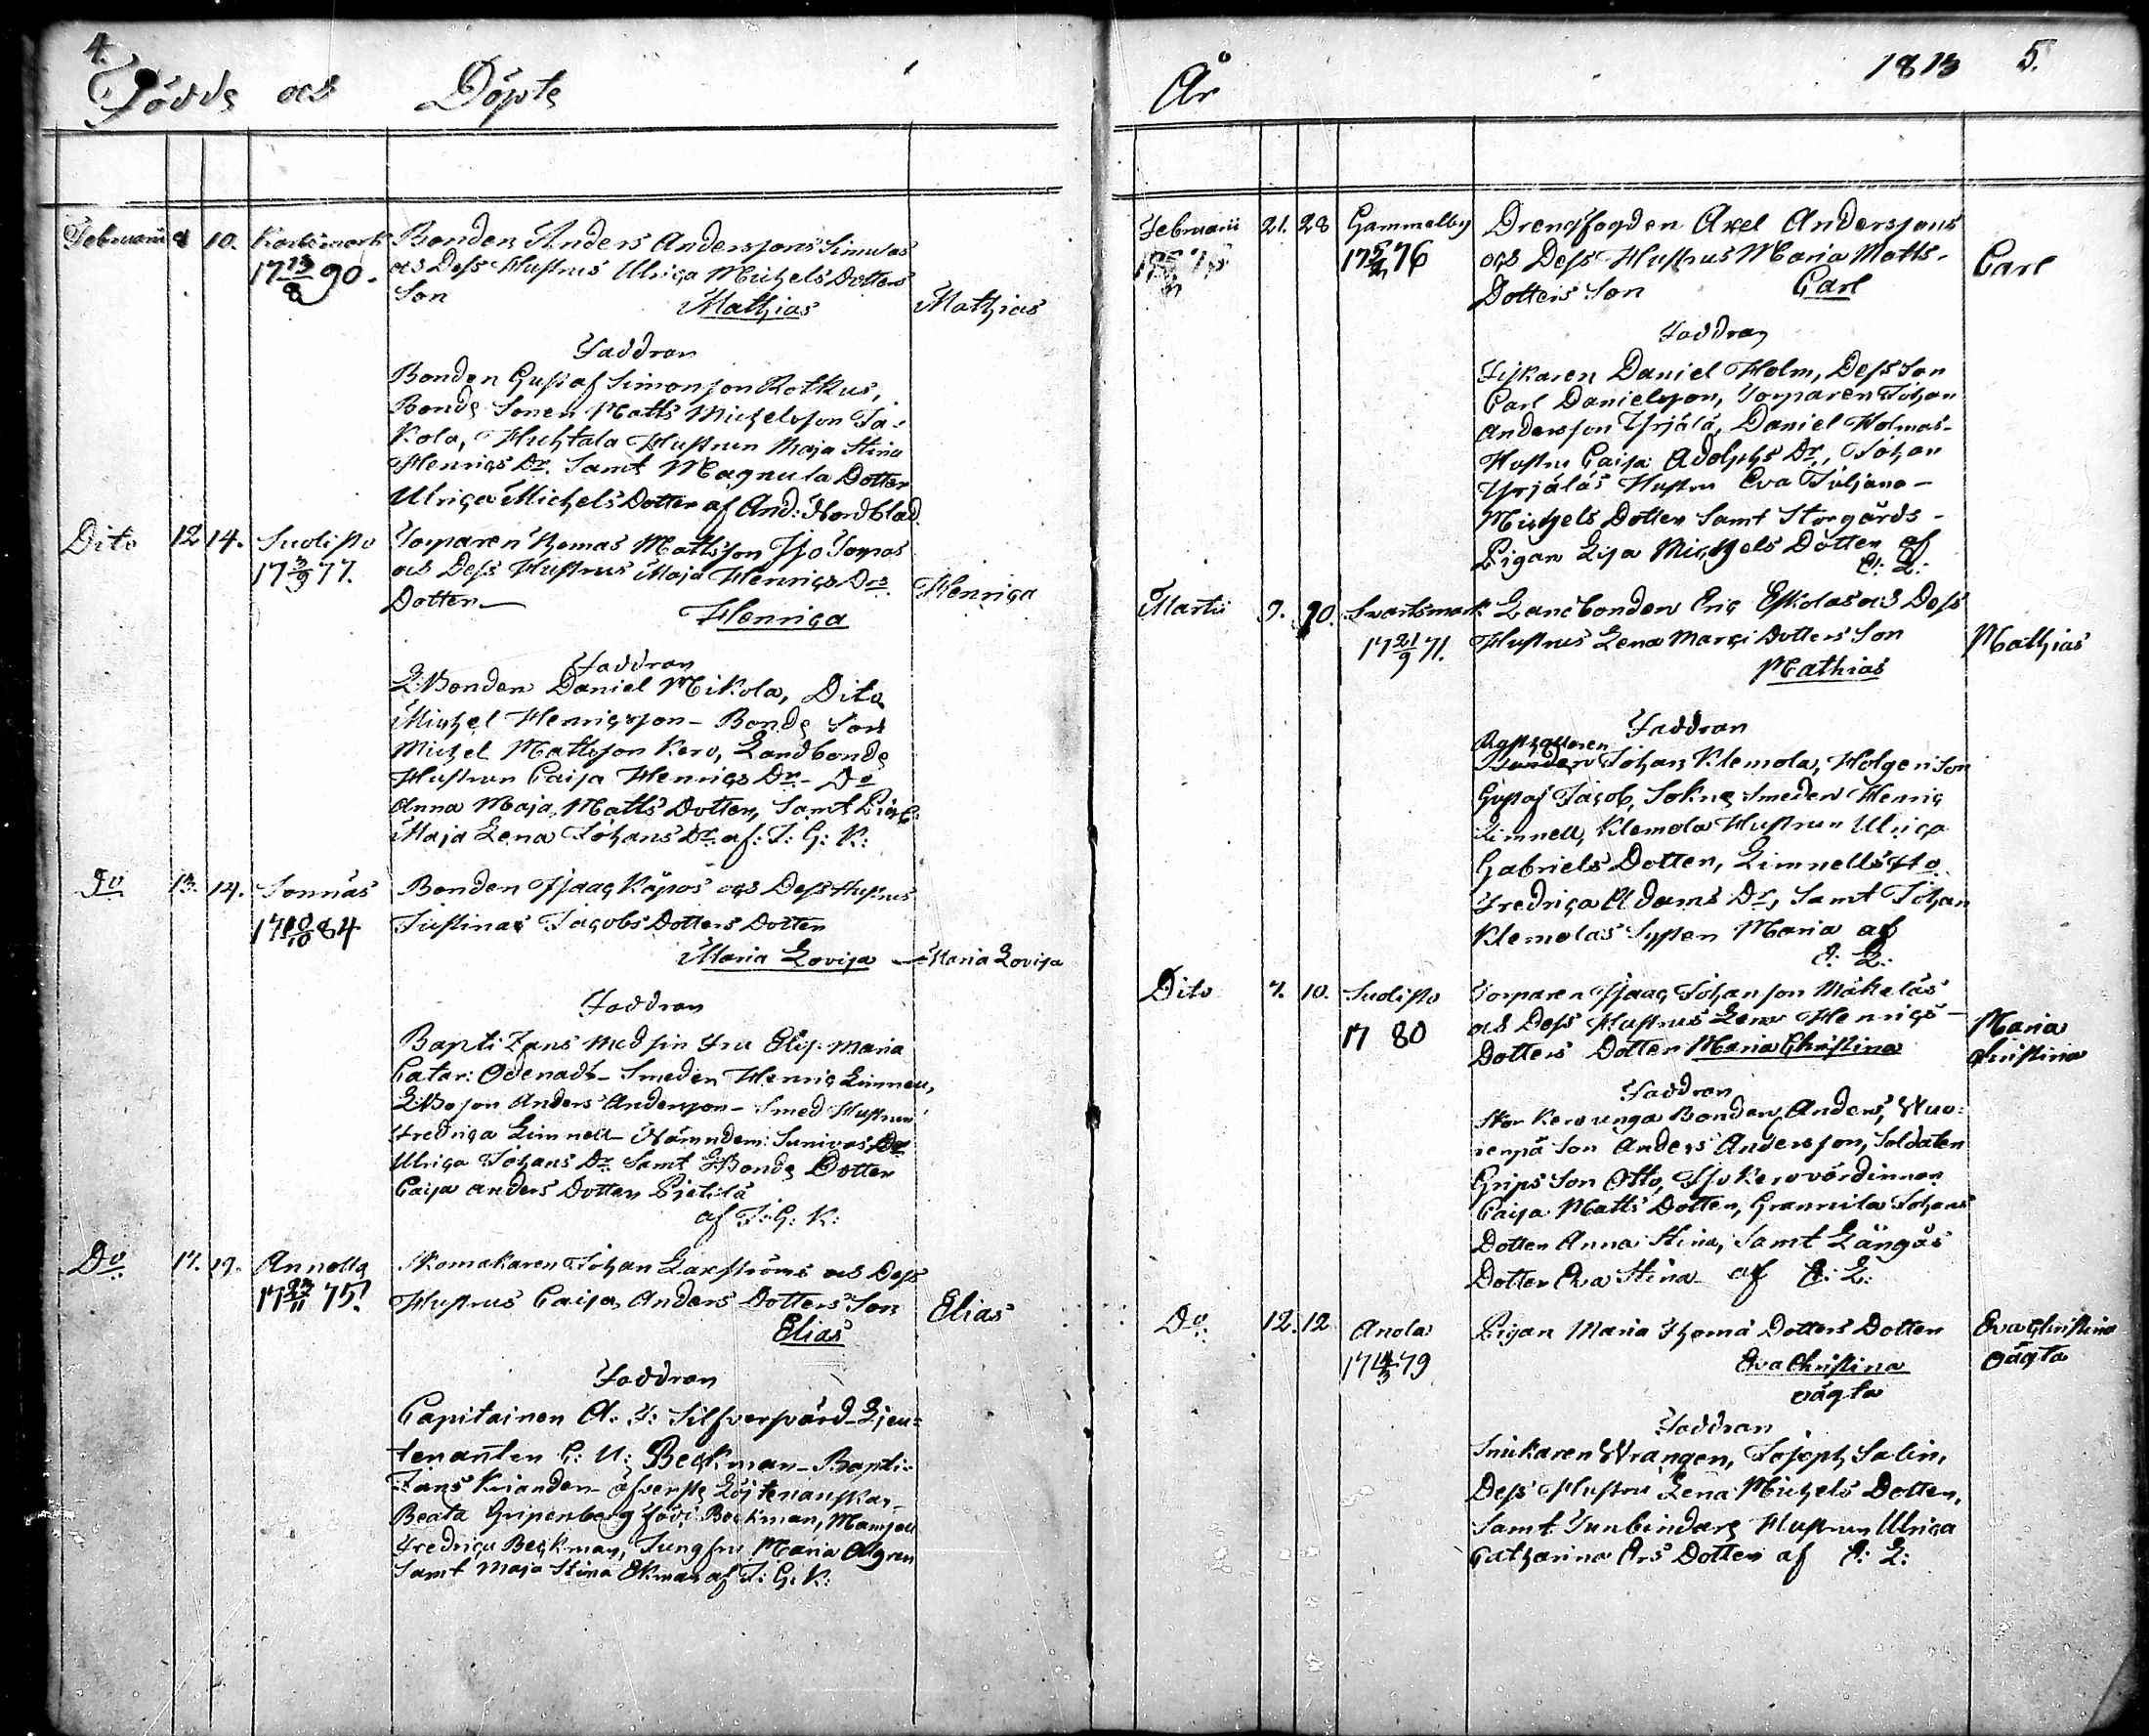 4.
Födde och Döpte
Februarii 9 10. Karlsmark Bonden Anders Anderssons Simolas
17 13/8 90. och Dess Hustrus Ulrica Michels Dotters
Son Mathias Mathias
Faddran
Bonden Gustaf Simonsson Rotkus,
Bonde Sonen Matts Michelsson Ja-
Kola, Huhtala Hustrun Maja Stina
Henrics Dr. Samt Magnula Dotter
Ulrica Michels Dotter af And: Nordblad
Dito 12 14. Suolisto Torparen Tomas Mattsson Iso Tomas
17 3/9 77. och Dess Hustrus Maja Henrics Drs Henrica
Dotter Henrica
Faddran
LBonden Daniel Mikola, Dito
Michel Henricsson - Bonde Son
Michel Mattsson Kero, Landbonde
Hustrun Caisa Henrics Dr - Do
Anna Maja Matts Dotter, Samt Pig:
Maja Lena Johans Dr. af: J: G: K:
Do 13. 14. Sonnäs Bonden Isaac Köpos och Dess Hustrus
17 10/10 84 Justinas Jacobs Dotters Dotter
Maria Lovisa Maria Lovisa
Faddran
Bapti Zans med sin Fru Elis. Maria
Catar: Odenadt - Smeden Henric Limnell,
LBoson Anders Andersson - Smed Hustrun
Fredrica Limnell - Nämndem: Sunivas Dr
Ulrica Johans Dr. Samt LBonde Dotter
Caisa Anders Dotter Pietilä
af J: G: K:
Do 17. 19. Annolla Skomakaren Johan Laxströms och Dess
17 23/11 75. Hustrus Caisa Anders Dotters Son Elias
Elias
Faddran
Capitainen A. F: Silfversvärd - Ljeu-
tenanten C: U: Beckman - Bapti-
Zans Kianden - öfverste Löjtenanskan
Beata Gripenberg född Beckman, Mamsell
Fredrica Beckman, Jungfru Maria Allgren
Samt Maja Stina Ekman af J: G: K:
År 1813 5.
Februarii 21. 28 Gammelby Drengfogden Axel Anderssons
17 5/2 76 och Dess Hustrus Maria Matts-
Dotters Son Carl Carl
Faddran
Fiskaren Daniel Holm, Dess Son
Carl Danielsson, Torparen Johan
Andersson Yrjälä, Daniel Holmas-
Hustru Caisa Adolphs Dr., Johan
Yrjäläs Hustru Eva Juliana -
Michels Dotter Samt Storgårds -
Pigan Lisa Michels Dotter af
E: L:
Martii 9. 10. Svartsmark Landbonden Eric Eskolas och Dess
17 21/9 71. Hustrus Lena Marci Dotters Son Mathias
Mathias
Faddran
Rusthållaren
Bonden Johan Klemola, Holgeri Son
Gustaf Jacob, Sokne Smeden Henric
Limnell, Klemola Hustrun Ulrica
Gabriels Dotter, Limnells Ho
Fredrica Adams Dr, Samt Johan
Klemolas Syster Maria af
E: L:
Dito 7. 10. Suolisto Torparen Isaac Johansson Mäkeläs
17 80 och Dess Hustrus Lena Henrics -
Dotters Dotter Maria Christina Maria
Christina
Faddran
Stor Kero unga Bonden, Anders, Wuo-
renpä Son Anders Andersson, Soldaten
Grips Son Otto, Iso Kero vördinnan
Caisa Matts Dotter, Grannila Johans
Dotter Anna Stina, Samt Längås
Dotter Eva Stina af E: L:
Do 12. 12 Anola Pigan Maria Thomä Dotters Dotter Eva Christina
17 4/3 79 Eva Christina oägta
oägta
Faddran
Snickaren Wrangen, Joseph Salin,
Dess Hustru Lena Michels Dotter,
Samt Tunbindare Hustrun Ulrica
Catharina Ers Dotter af E: L: